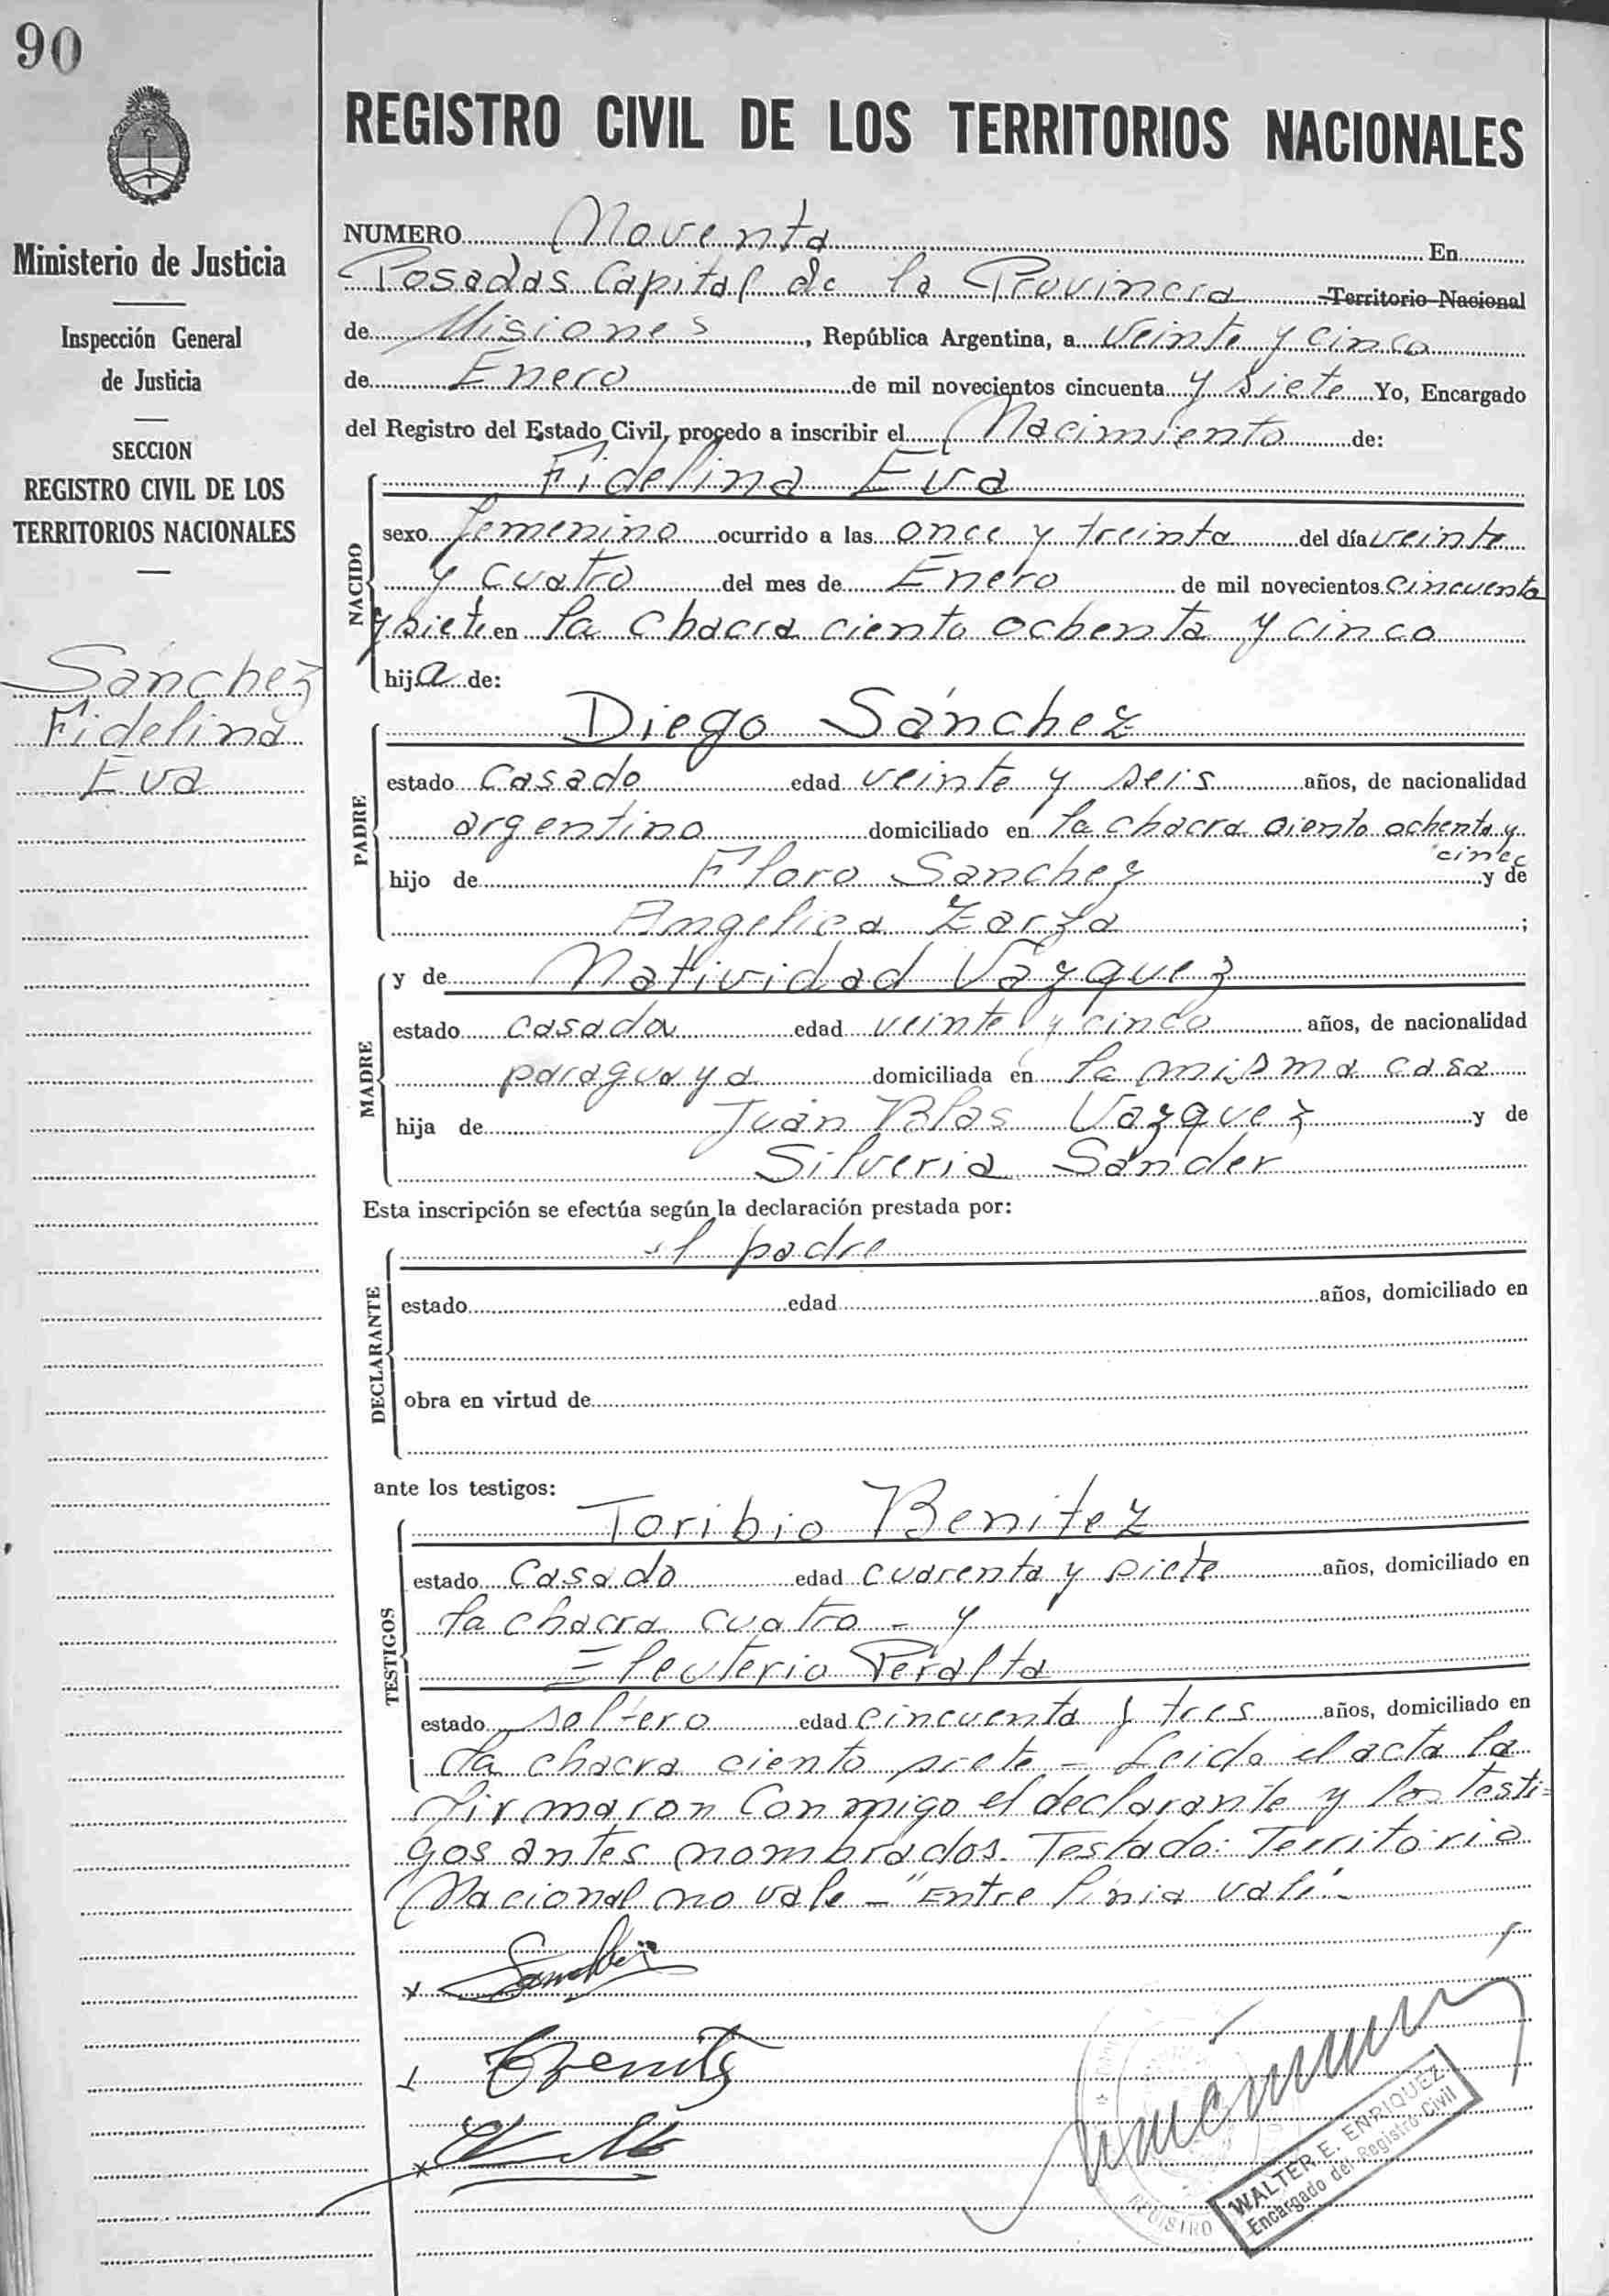 90
Ministerio de Justicia
Inspección General
de Justicia
SECCION
REGISTRO CIVIL DE LOS
TERRITORIOS NACIONALES
Sánchez
Fidelina
Eva
REGISTRO CIVIL DE LOS TERRITORIOS NACIONALES
NUMERO Noventa En
Posadas Capital de la Provincia Territorio Nacional
de Misiones, República Argentina, a veinte y cinco
de Enero de mil novecientos cincuenta y siete Yo, Encargado
del Registro del Estado Civil, procedo a inscribir el Nacimiento de:
NACIDO
Fidelina Eva
sexo femenino ocurrido a las once y treinta del día veinte
y cuatro del mes de Enero de mil novecientos cincuenta
y siete en la chacra ciento ochenta y cinco
hija de:
PADRE
Diego Sánchez
estado casado edad veinte y seis años, de nacionalidad
argentino domiciliado en la chacra ciento ochenta y
"cinco
hijo de Floro Sanchez y de
Angelica Zarza;
MADRE
y de Natividad Vazquez
estado casada edad veinte y cinco años, de nacionalidad
paraguaya domiciliada en la misma casa
hija de Juan Blas Vazquez y de
Silveria Sander
Esta inscripción se efectúa según la declaración prestada por:
DECLARANTE
el padre
estado edad años, domiciliado en
obra en virtud de
ante los testigos:
TESTIGOS
Toribio Benitez
estado Casado edad cuarenta y siete años, domiciliado en
la chacra cuatro - y
Eleuterio Peralta
estado soltero edad cincuenta y tres años, domiciliado en
la chacra ciento siete - Leido el acta la
firmaron conmigo el declarante y los testi=
gos antes nombrados. Testado: Territorio
Nacional no vale - "Entre linia vale".-
Sanchez
Benitez
REGISTRO
WALTER E. ENRIQUEZ
Encargado del Registro Civil